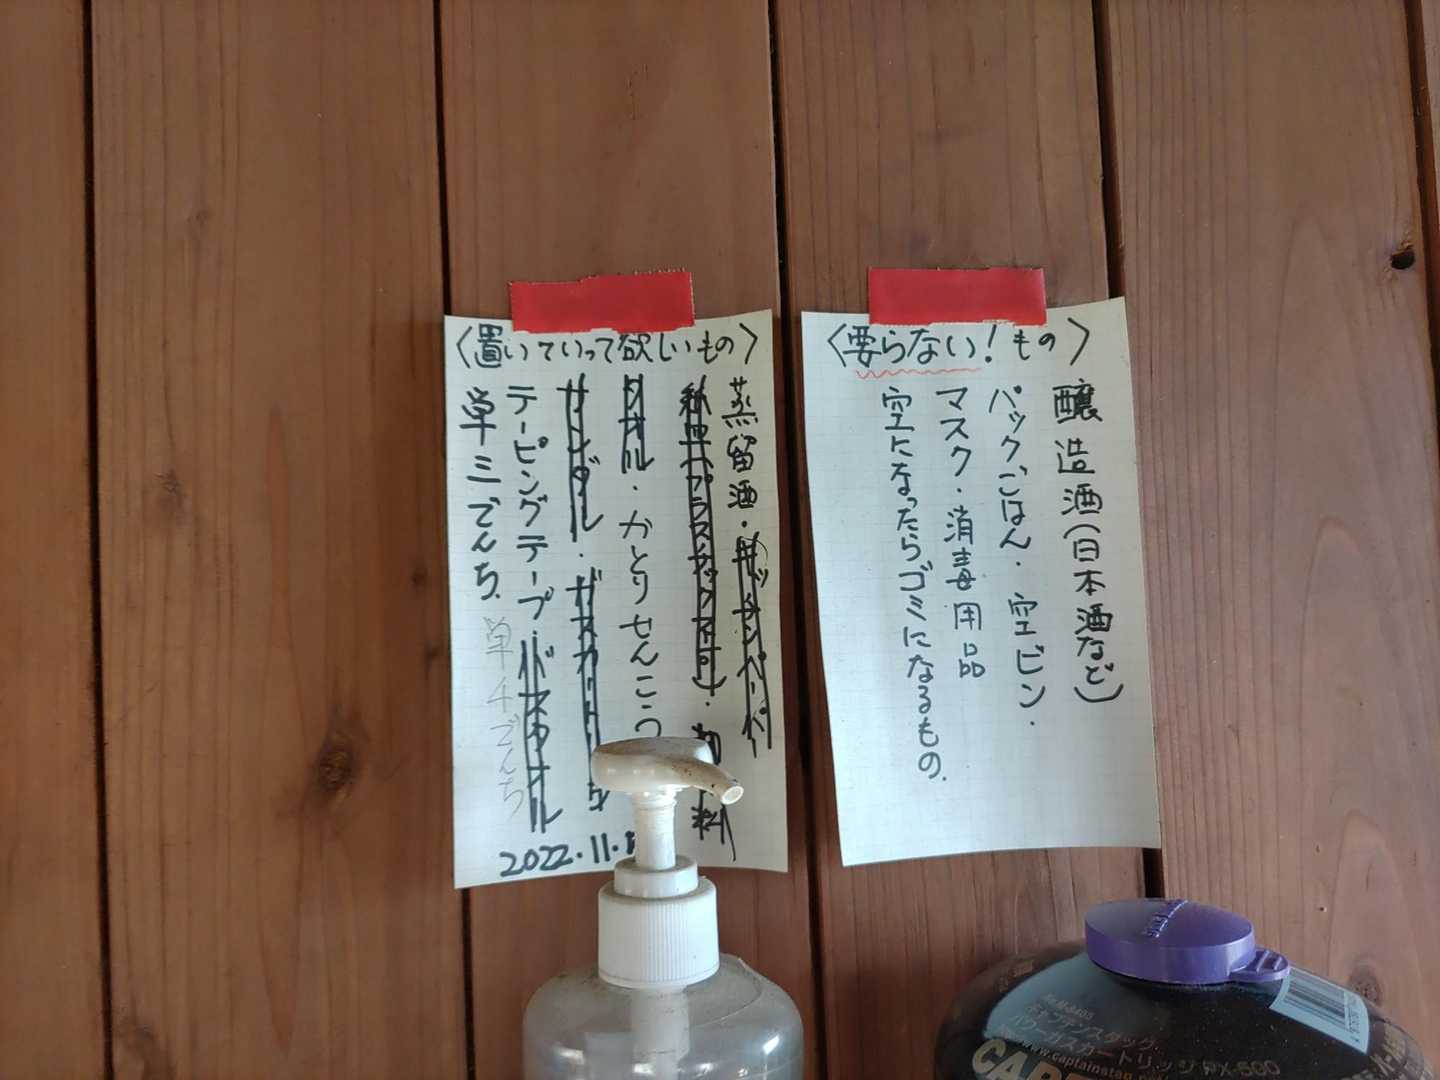 〈置いていって欲しいもの〉
蒸留酒・キッチンペーパー
タオル・かとりせんこう
サンダル・ガスカートリッ
テーピングテープ・バスタオル
単三でんち
単4でんち
2022.11.
〈要らない!もの〉
醸造酒(日本酒など)
パックごはん・空ビン・
マスク・消毒用品
空になったらゴミになるもの.
No.M-8405
キャプテンスタッグ
パワーガスカートリッジ PX-500
www.captainstag.net